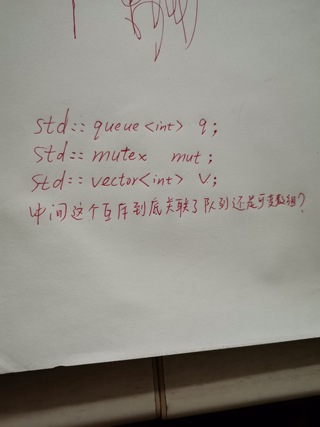 std::queue<int> q;
std::mutex mut;
std::vector<int> v;
中间这个互斥到底关联了队列还是可变数组?